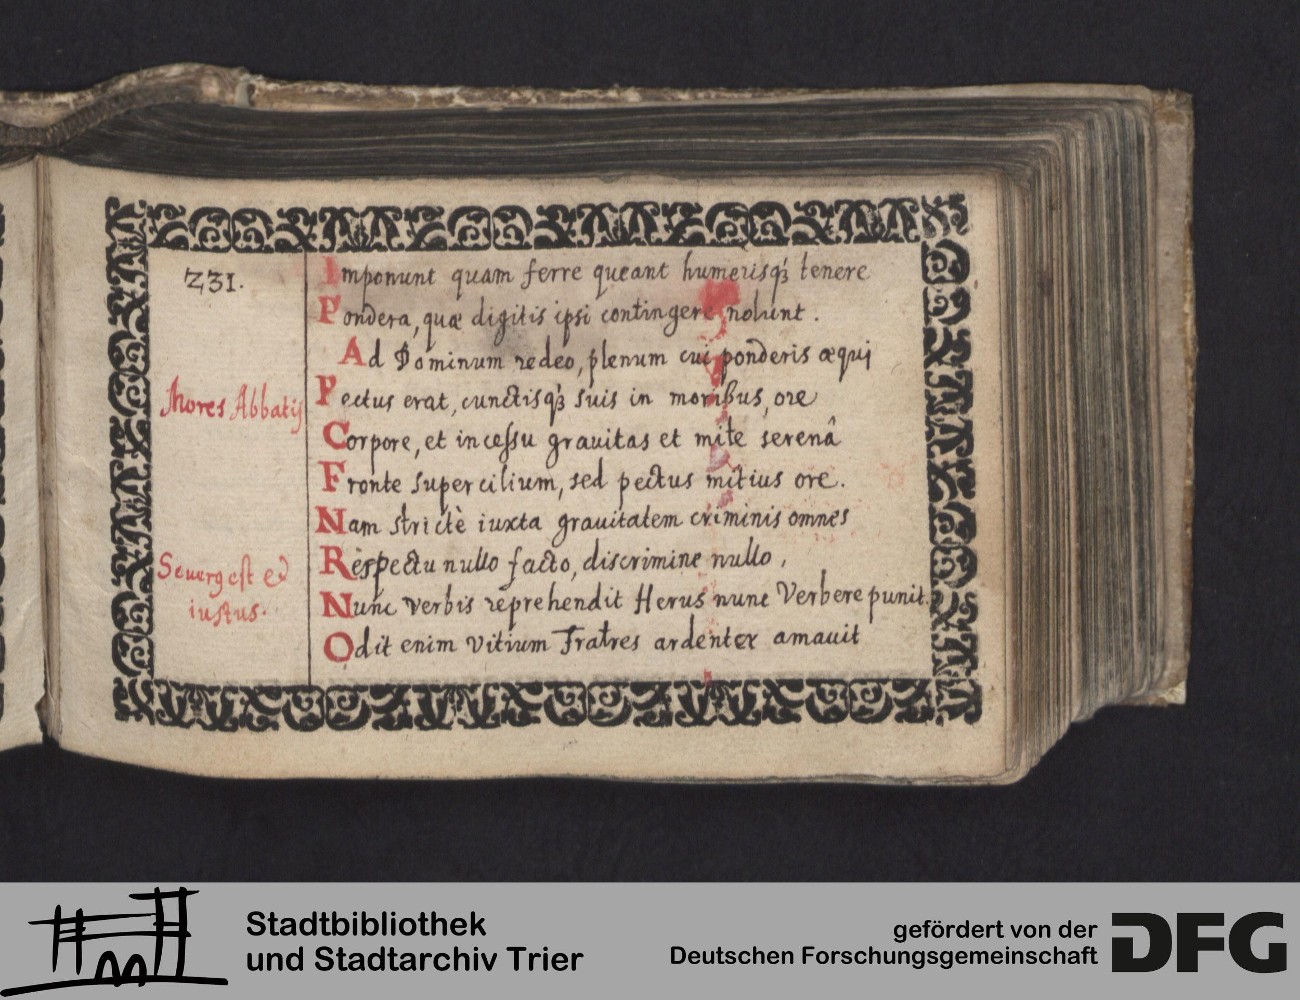 231.
Imponunt quam ferre queant humerisq́; tenere
Pondera, quæ digitis ipsi contingere nolunt.
Ad Dominum redeo, plenum cui ponderis æqui
Mores Abbatis
Pectus erat, cunctisq́; suis in moribus, ore
Corpore, et incessu grauitas et mite serenâ
Fronte supercilium, sed pectus mitius ore.
Nam strictè iuxta grauitatem criminis omnes
Seuerꝰ est et
iustus.
Respectu nullo facto, discrimine nullo,
Nunc verbis reprehendit Herus nunc Verbere punit.
Odit enim Vitium Fratres ardenter amauit
Stadtbibliothek
und Stadtarchiv Trier
gefördert von der
Deutschen Forschungsgemeinschaft
DFG